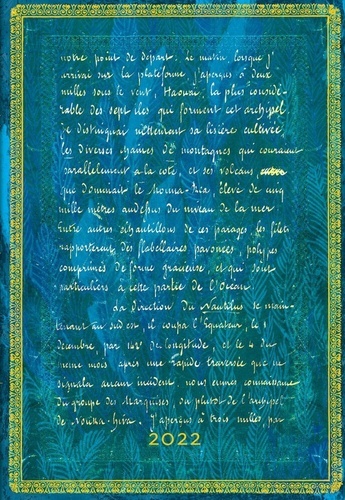 notre point de départ. Le matin, lorsque j'
arrivai sur la plateforme, j'aperçus à deux
milles sous le vent, Haouaï, la plus considé-
rable des sept iles qui forment cet archipel.
Je distinguai nettement sa lisière cultivée,
les diverses chaînes de montagnes qui couraient
parallèlement à la côte, et ses volcans
que dominait le Mouna-Réa, élevé de cinq
mille mètres audessus du niveau de la mer.
Entre autres échantillons de ces parages, les filets
rapportèrent des flabellaires pavonées, polypes
comprimés de forme gracieuse, et qui sont
particuliers à cette partie de l'Océan.
La direction du Nautilus se main-
tenant au sud-est, il coupa l'Équateur, le 1
décembre, par 142° de longitude, et le 4 du
même mois, après une rapide traversée que ne
signaler aucun incident, nous eumes connaissance
du groupe des Marquises, ou plutot de l'archipel
de Nouka-hiva. J'aperçus à trois milles par
2022